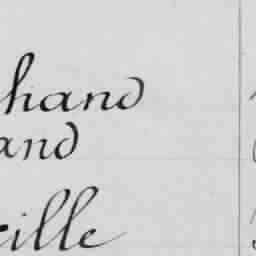 hand
and
ille